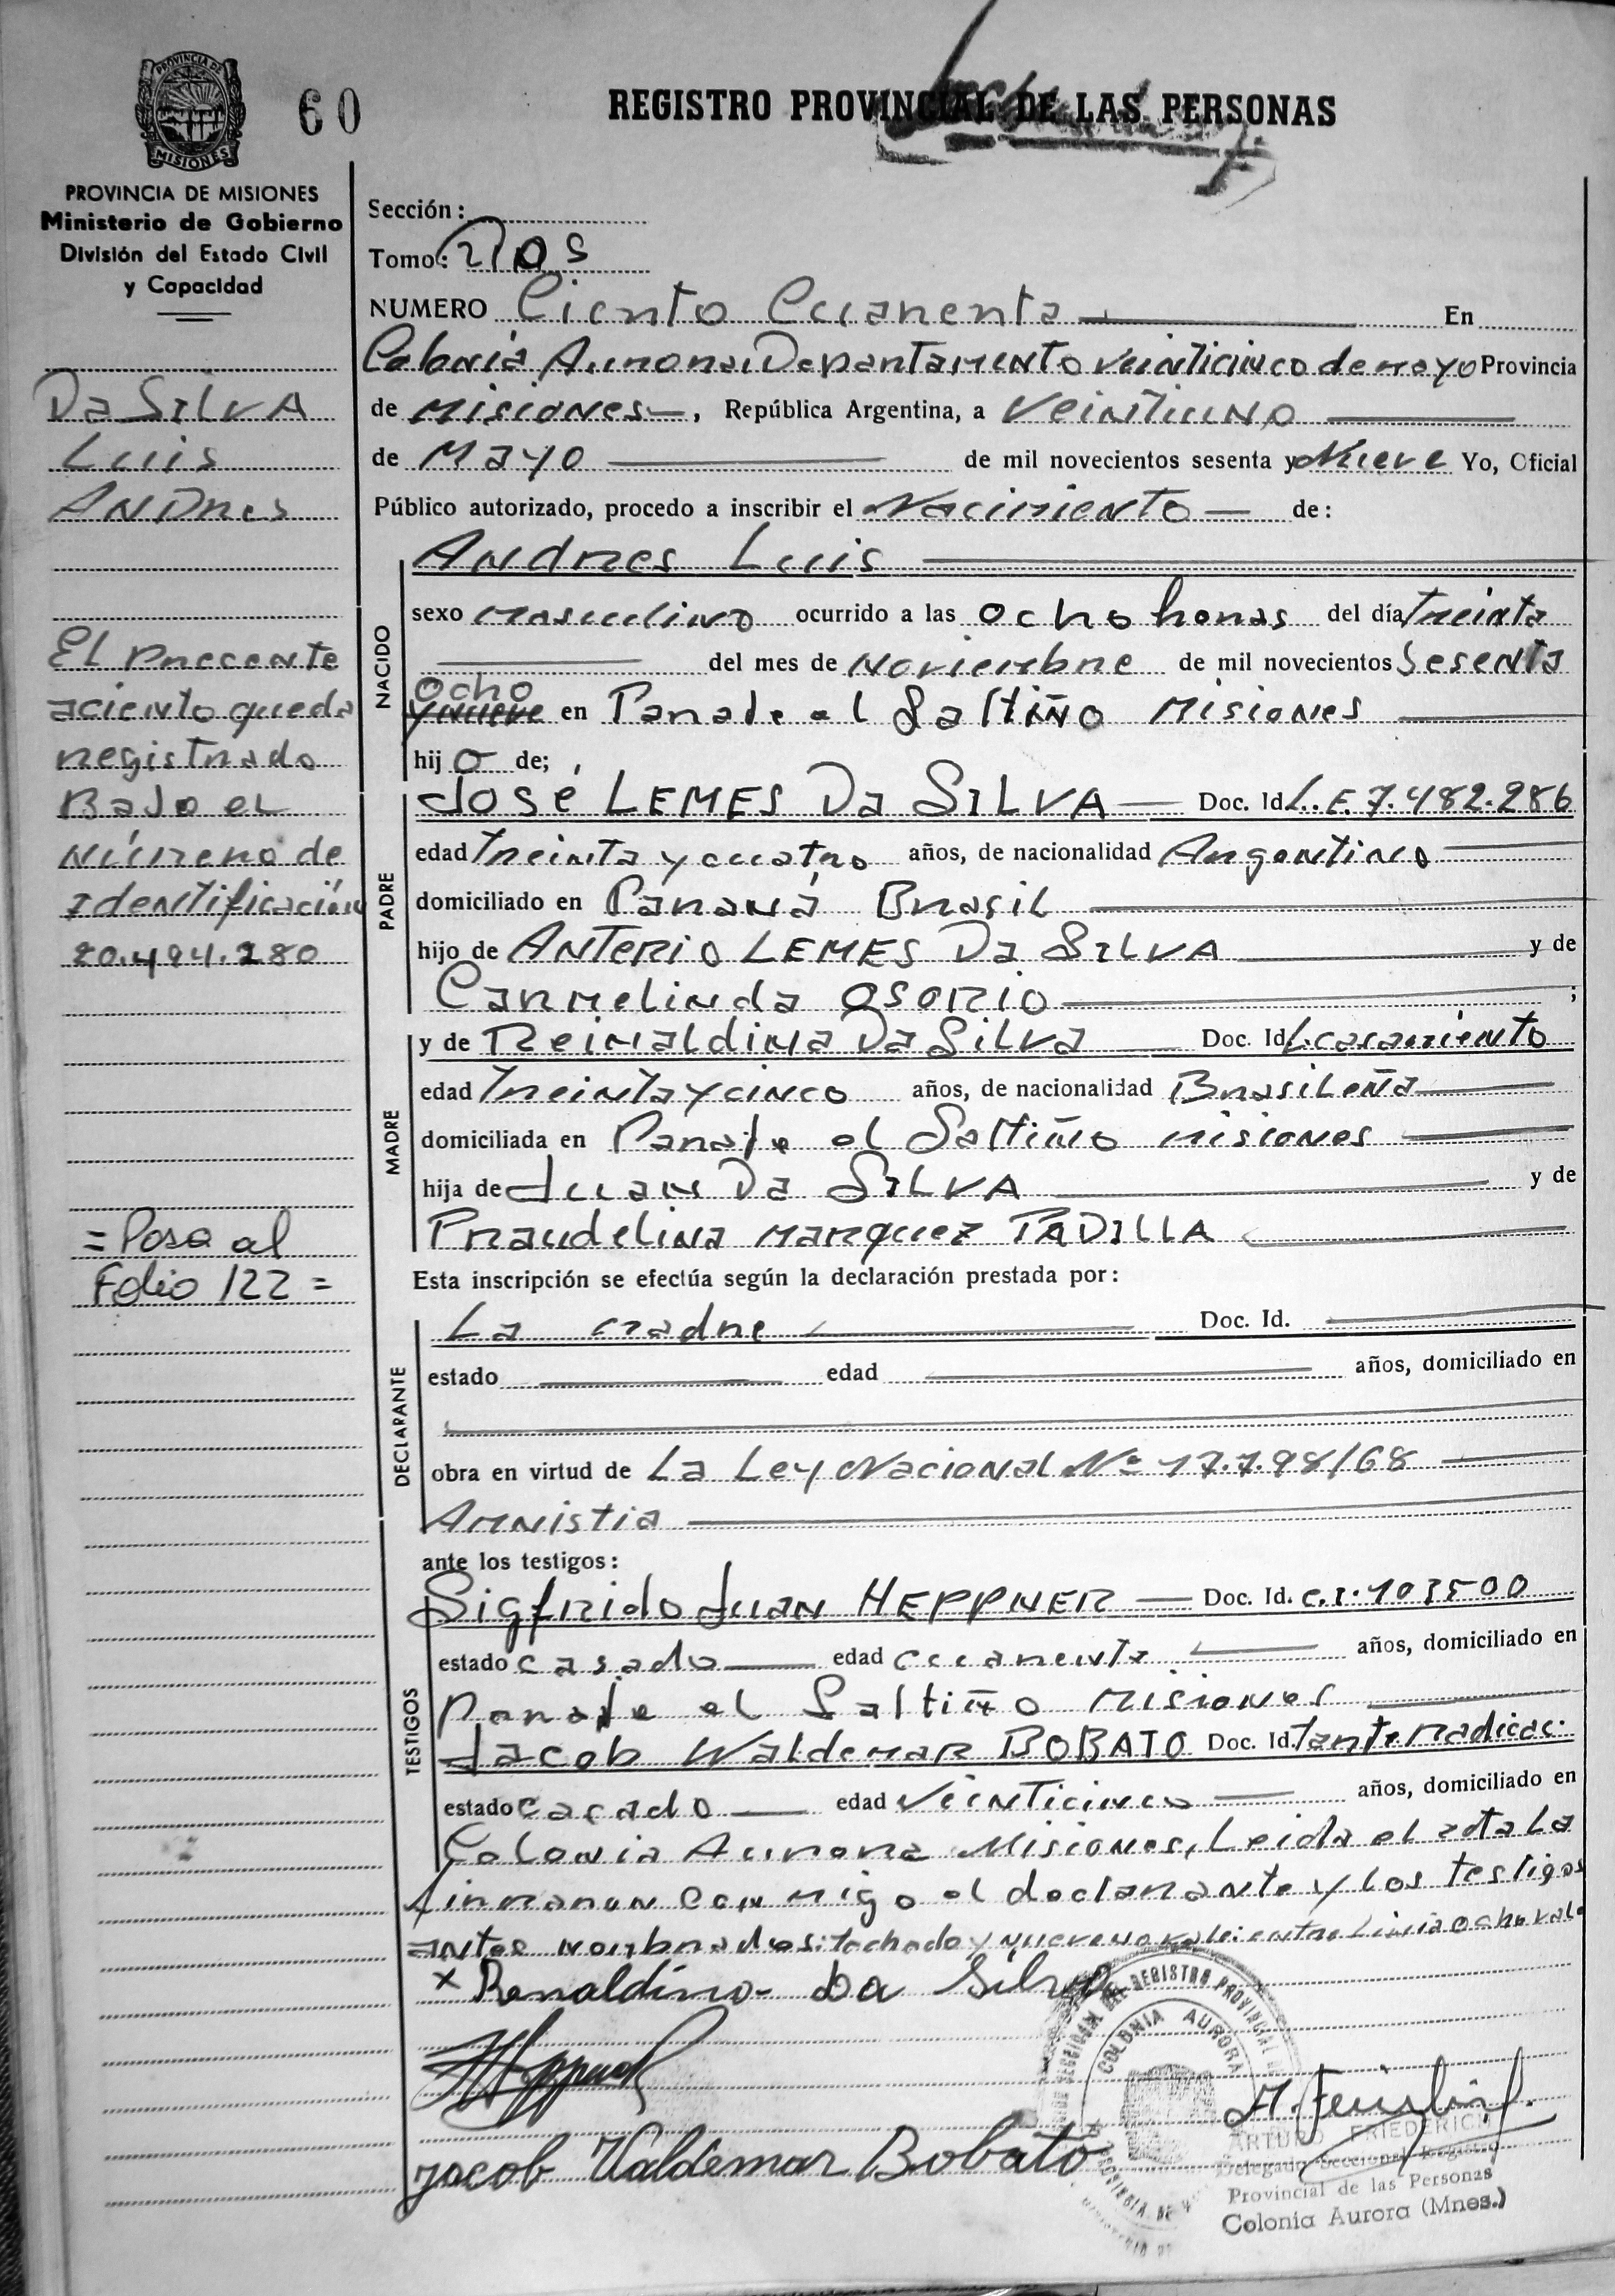 PROVINCIA DE
MISIONES
60
REGISTRO PROVINCIAL DE LAS PERSONAS
PROVINCIA DE MISIONES
Ministerio de Gobierno
División del Estado Civil
y Capacidad
Da SILVA
Luis
ANDRes
El presente
aciento queda
registrado
Bajo el
Número de
Identificación
20.494.280
= Pasa al
Folio 122 =
Sección:
Tomo: DOS
NUMERO Ciento Cuarenta En
Colonia Aurora Departamento Veinticinco de mayo Provincia
de Misiones, República Argentina, a Veintiuno
de Mayo de mil novecientos sesenta y Nueve Yo, Oficial
Público autorizado, procedo a inscribir el Nacimiento de:
NACIDO
Andres Luis
sexo masculino ocurrido a las Ocho horas del día treinta
del mes de Noviembre de mil novecientos Sesenta
ocho
y nueve en Parada el Saltiño Misiones
hij o de;
PADRE
José LEMES Da SILVA Doc. Id L.E. 7.482.286
edad treinta y cuatro años, de nacionalidad Argentino
domiciliado en Paraná Brasil
hijo de ANTERIO LEMES Da SILVA y de
Carmelinda OSORIO ;
MADRE
y de Reinaldina Da Silva Doc. Id L. casamiento
edad treinta y cinco años, de nacionalidad Brasileña
domiciliada en Parada el Saltiño misiones
hija de Juan Da SILVA y de
Praudelina Marquez PADILLA
Esta inscripción se efectúa según la declaración prestada por:
DECLARANTE
La madre Doc. Id.
estado edad años, domiciliado en
obra en virtud de La Ley Nacional Nº 17.7.98/68
Amnistia
ante los testigos:
TESTIGOS
Sigfrido Juan HEPPNER Doc. Id. C.I. 103500
estado casado edad cuarenta años, domiciliado en
Parada el Saltiño Misiones
Jacob Waldemar BOBATO Doc. Id. tarjt. Radicac.
estado casado edad Veinticinco años, domiciliado en
Colonia Aurora Misiones, Leida el acta La
firmaron conmigo el declarante y los testigos
antes nombrados: tachado y nueve no vale: entre Linia ocho vale
x Renaldina Da Silva
Jacob Valdemar Bobato
REGISTRO PROVINCIAL
COLONIA AURORA
ARTURO FRIEDERICH
Delegado Seccional Registro
Provincial de las Personas
Colonia Aurora (Mnes.)